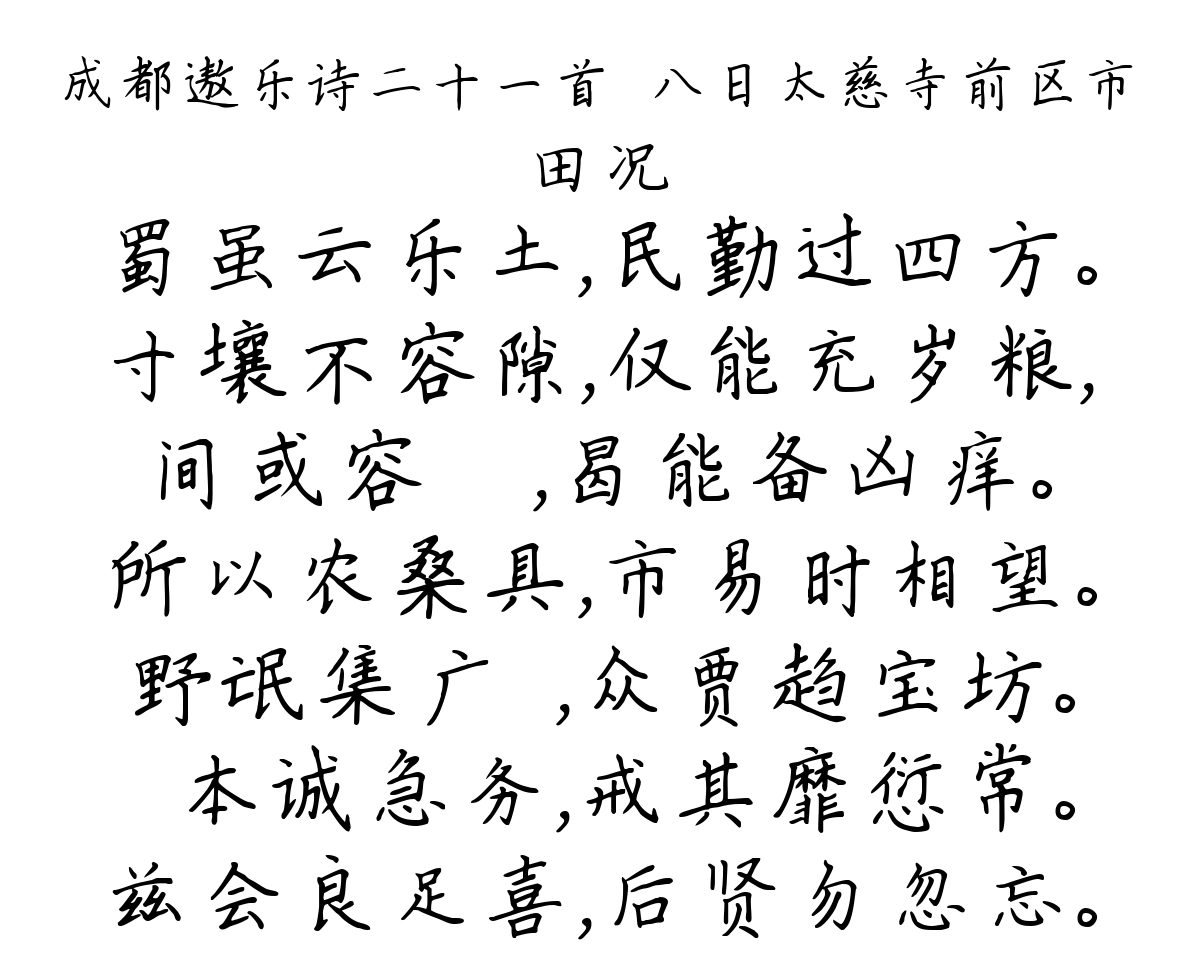 成都遨乐诗二十一首 八日太慈寺前区市
田况
蜀虽云乐土,民勤过四方。
寸壤不容隙,仅能充岁粮,
间或容 ,曷能备凶痒。
所以农桑具,市易时相望。
野氓集广 ,众贾趋宝坊。
本诚急务,戒其靡愆常。
兹会良足喜,后贤勿忽忘。